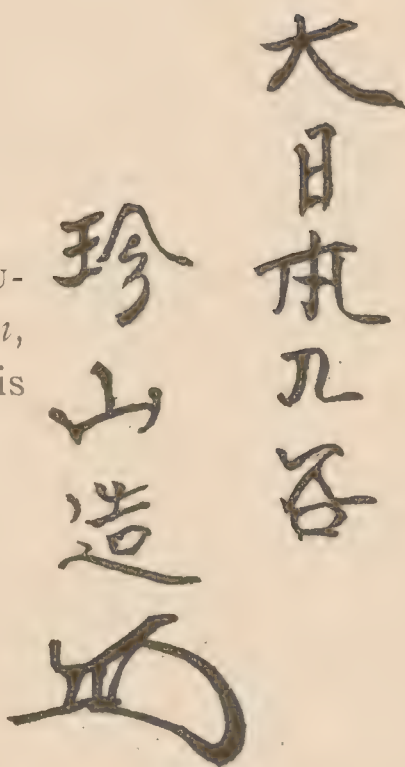 大日本九谷
珍山造
U-
is